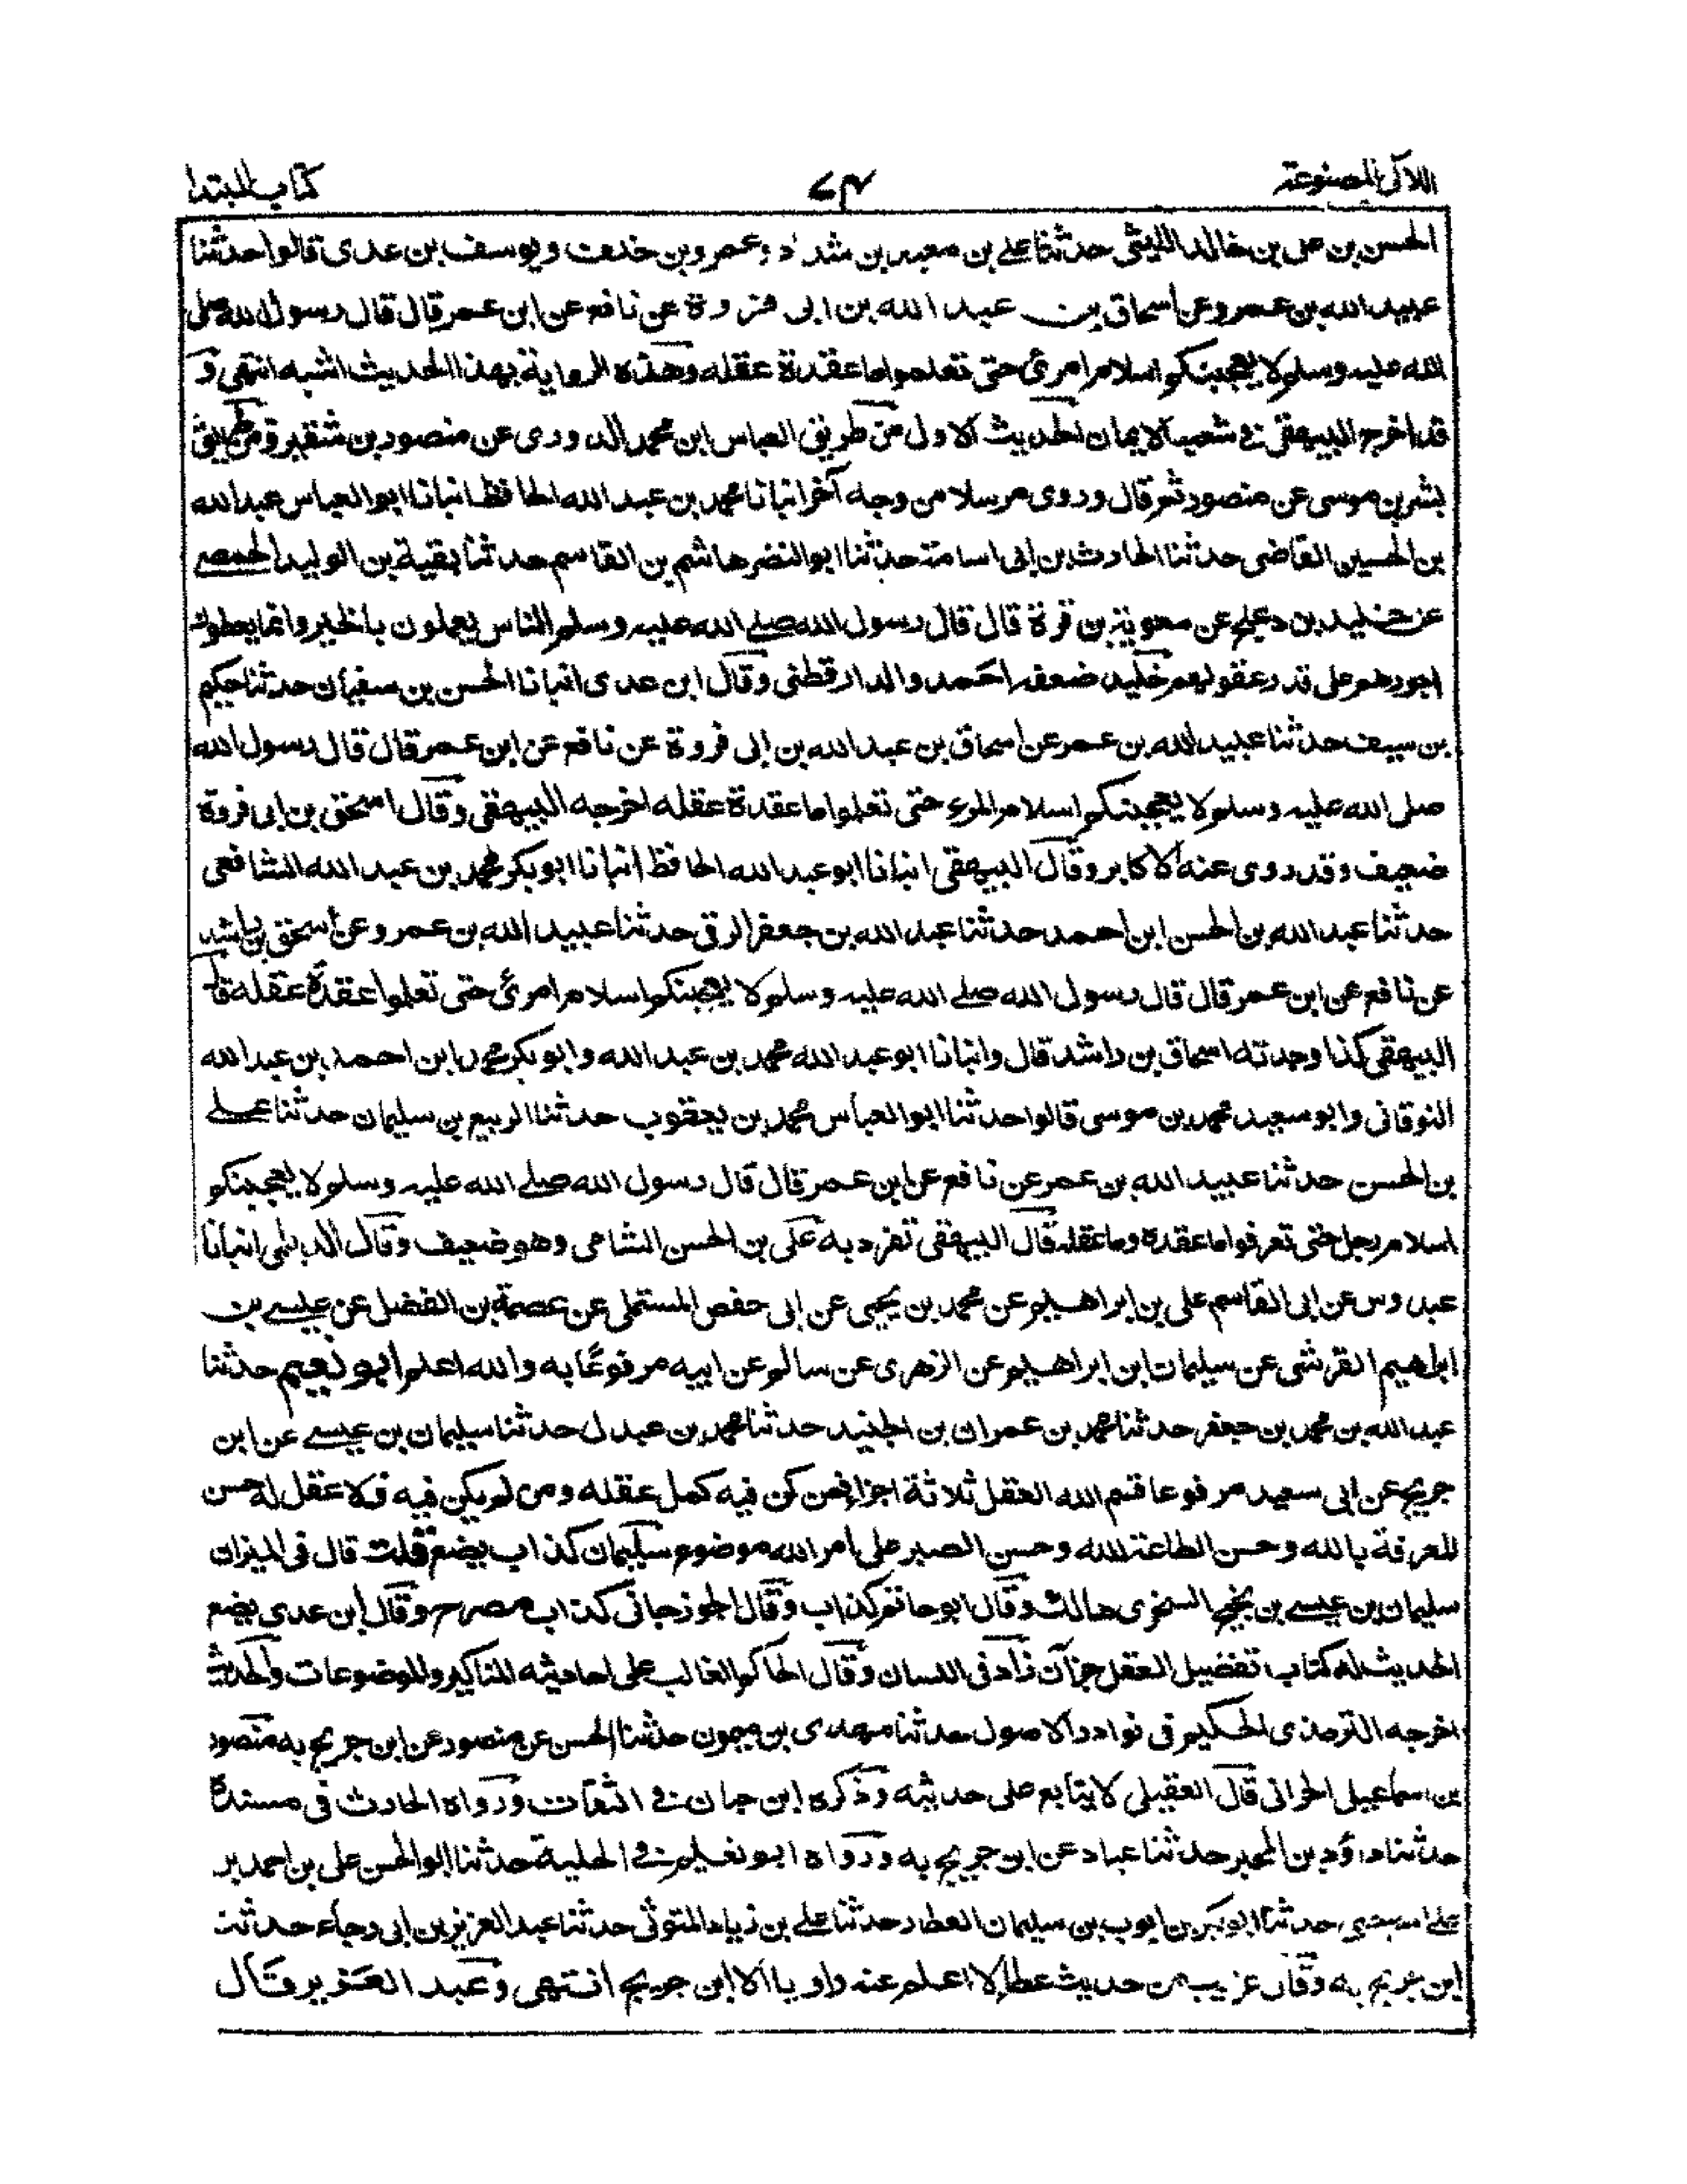 اللآلى المصنوعة ٦٧ كتاب المبتدا
الحسن بن على بن خالد الليثى حدثنا على بن معبد بن شداد وعمرو بن خدعت ويوسف بن عدى قالوا حدثنا
عبيد الله بن عمرو عن اسحاق بن عبد الله بن ابى فروة عن نافع عن ابن عمر قال قال رسول الله صلى
الله عليه وسلم لا يعجبنكم اسلام امرئ حتى تعلموا ما عقدة عقله وهذه الرواية بهذا الحديث اشبه انتهى و
قد اخرج البيهقى فى شعب الايمان الحديث الاول من طريق العباس ابن محمد الدورى عن منصور بن شقير ومن طريق
بشر بن موسى عن منصور ثم قال وروى مرسلا من وجه آخر انبانا محمد بن عبد الله الحافظ انبانا ابو العباس عبد الله
بن الحسين القاضى حدثنا الحارث بن ابى اسامة حدثنا ابو النضر هاشم بن القاسم حدثنا بقية بن الوليد الحمصى
عن خليد بن دعلج عن معوية بن قرة قال قال رسول الله صلى الله عليه وسلم الناس يعملون بالخير وانما يعطون
اجورهم على قدر عقولهم خليد ضعفه احمد والدارقطنى وقال ابن عدى انبانا الحسن بن سفيان حدثنا حكيم
بن سيف حدثنا عبيد الله بن عمر عن اسحاق بن عبد الله بن ابى فروة عن نافع عن ابن عمر قال قال رسول الله
صلى الله عليه وسلم لا يعجبنكم اسلام المرء حتى تعلموا ما عقدة عقله اخرجه البيهقى وقال اسحق بن ابى فروة
ضعيف وقد روى عنه الاكابر وقال البيهقى انبانا ابو عبد الله الحافظ انبانا ابو بكر محمد بن عبد الله الشافعى
حدثنا عبد الله بن الحسن ابن احمد حدثنا عبد الله بن جعفر الرقى حدثنا عبيد الله بن عمرو عن اسحق بن راشد
عن نافع عن ابن عمر قال قال رسول الله صلى الله عليه وسلم لا يعجبنكم اسلام امرئ حتى تعلموا عقدة عقله قال
البيهقى كذا وجدته اسحاق بن راشد قال وانبانا ابو عبد الله محمد بن عبد الله وابو بكر محمد ابن احمد بن عبد الله
النوقانى وابو سعيد محمد بن موسى قالوا حدثنا ابو العباس محمد بن يعقوب حدثنا الربيع بن سليمان حدثنا على
بن الحسن حدثنا عبيد الله بن عمر عن نافع عن ابن عمر قال قال رسول الله صلى الله عليه وسلم لا يعجبنكم
اسلام رجل حتى تعرفوا ما عقده وما عقله قال البيهقى تفرد به على بن الحسن الشامى وهو ضعيف وقال الديلمى انبانا
عبدوس عن ابى القاسم على بن ابراهيم عن محمد بن يحيى عن ابى حفص المستملى عن عصمة بن الفضل عن عيسى بن
ابراهيم القرشى عن سليمان ابن ابراهيم عن الزهرى عن سالم عن ابيه مرفوعًا به والله اعلم ابو نعيم حدثنا
عبد الله بن محمد بن جعفر حدثنا محمد بن عمران بن الجنيد حدثنا محمد بن عبدل حدثنا سليمان بن عيسى عن ابن
جريج عن ابى سعيد مرفوعا قسم الله العقل ثلاثة اجزا فمن كن فيه كمل عقله ومن لم يكن فيه فلا عقل له حسن
المعرفة بالله وحسن الطاعة لله وحسن الصبر على امر الله موضوع سليمان كذاب يضع قلت قال فى الميزان
سليمان بن عيسى بن نجيح السنجزى هالك وقال ابو حاتم كذاب وقال الجوزجانى كذاب مصرح وقال ابن عدى يضع
الحديث له كتاب تفضيل العقل جزآن زاد فى اللسان وقال الحاكم الغالب على احاديثه المناكير والموضوعات والحديث
اخرجه الترمذى الحكيم فى نوادر الاصول حدثنا مهدى بن ميمون حدثنا الحسن عن منصور عن ابن جريج به منصور
بن اسماعيل الحرانى قال العقيلى لا يتابع على حديثه وذكره ابن حبان فى الثقات ورواه الحارث فى مسنده
حدثنا داؤد بن المحبر حدثنا عباد عن ابن جريج به ورواه ابو نعيم فى الحلية حدثنا ابو الحسن على بن احمد بن
على حدثنا ابو بكر بن ايوب بن سليمان العطار حدثنا على بن زياد المتوثى حدثنا عبد العزيز بن ابى رجاء حدثنا
ابن جريج به وقال غريب من حديث عطا لا اعلم عنه راويا الا ابن جريج انتهى وعبد العزيز قال